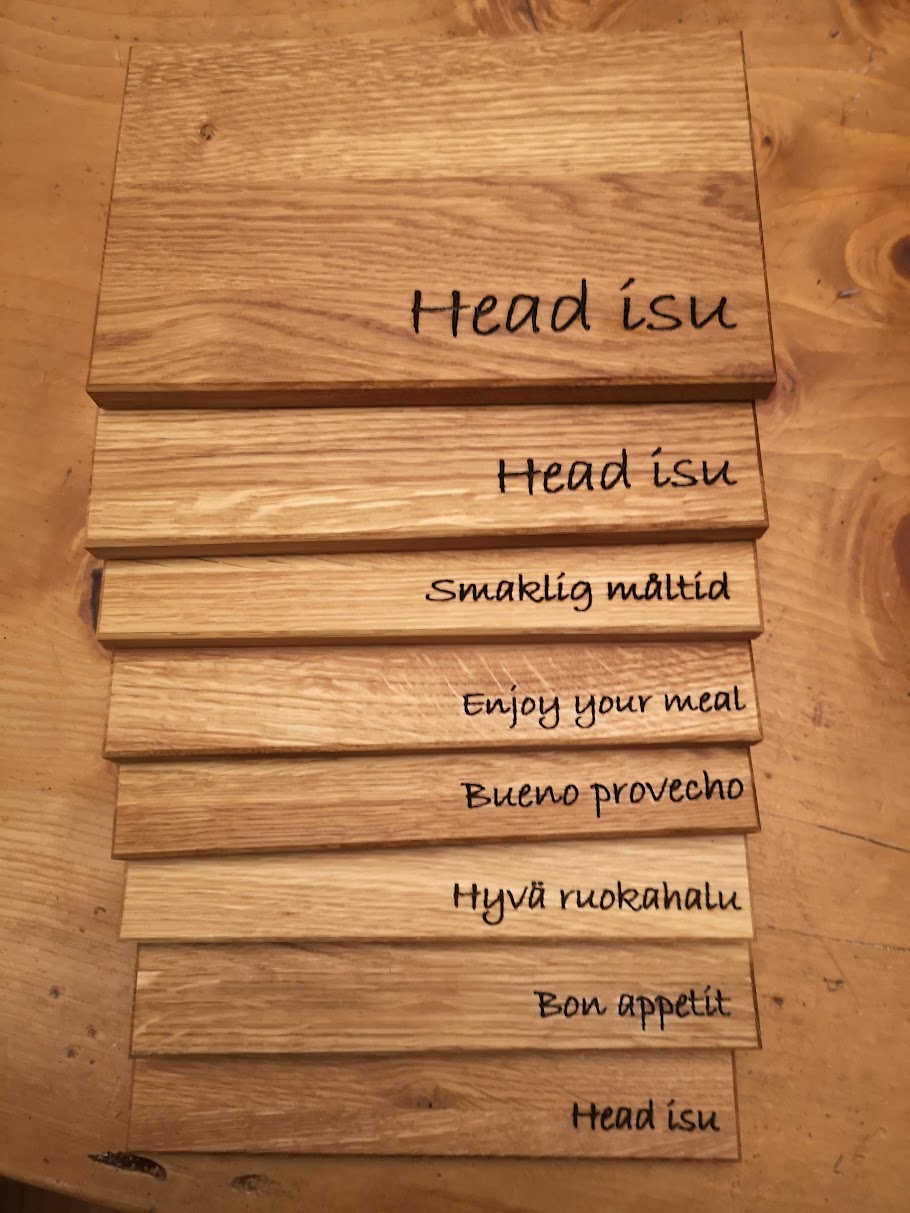 Head isu
Head isu
Smaklig måltid
Enjoy your meal
Bueno provecho
Hyvä ruokahalu
Bon appetit
Head isu